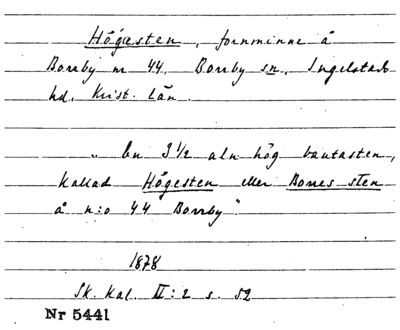 Högesten, fornminne å
Borrby nr 44, Borrby sn, Ingelstads
hd, Krist. län.
„ En 3 1/2 aln hög bautasten,
kallad Högesten eller Bones sten
å n:o 44 Borrby".
1878
Sk. Kal. II: 2 s. 52
Nr 5441